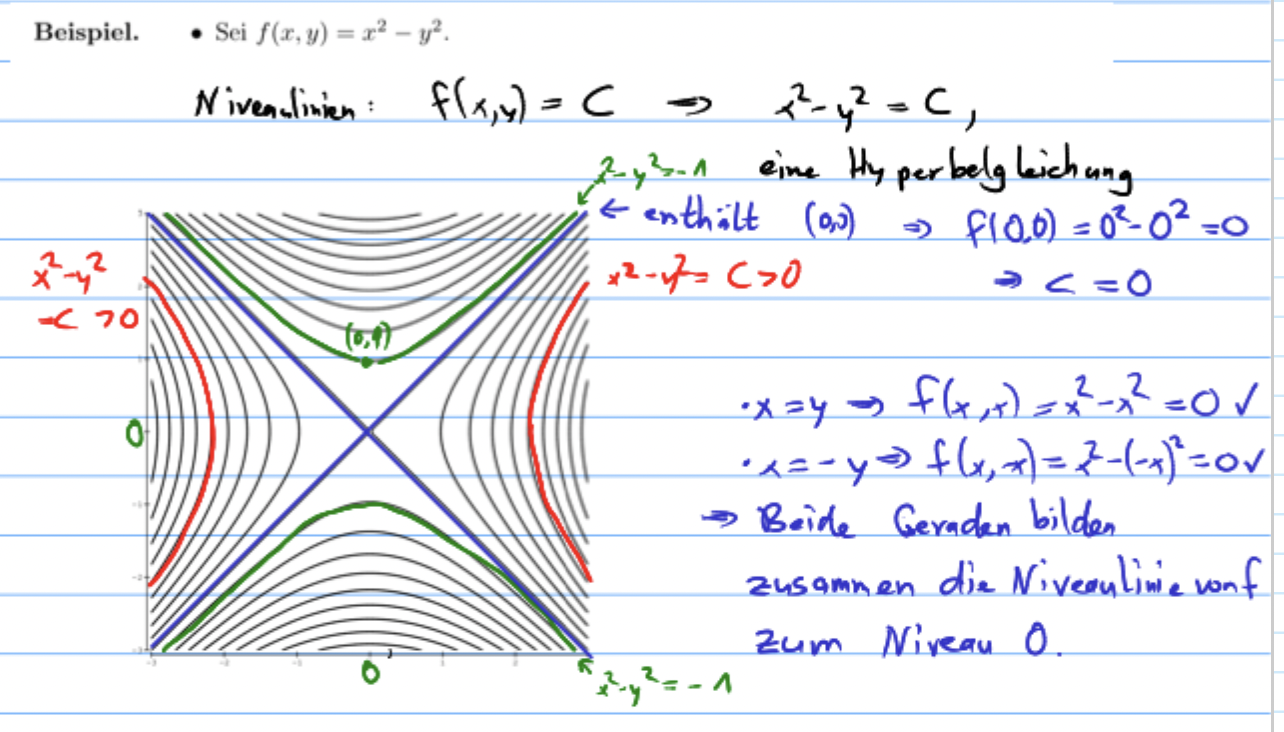 Beispiel. • Sei f(x, y) = x² − y².
Niveaulinien: f(x,y) = C ⇒ x²-y² = C,
eine Hyperbelgleichung
x²-y²=-1
← enthält (0,0) ⇒ f(0,0) = 0²-0² =0
⇒ C = 0
x²-y²
=C >0
x²-y² = C>0
(0,1)
·x=y ⇒ f(x,x) =x²-x² =0 ✓
·x=-y ⇒ f(x,-x)= x²-(-x)²=0 ✓
⇒ Beide Geraden bilden
zusammen die Niveaulinie von f
zum Niveau 0.
0
0
x²-y²=-1
3
2
1
-1
-2
-3
-3 -2 -1 1 2